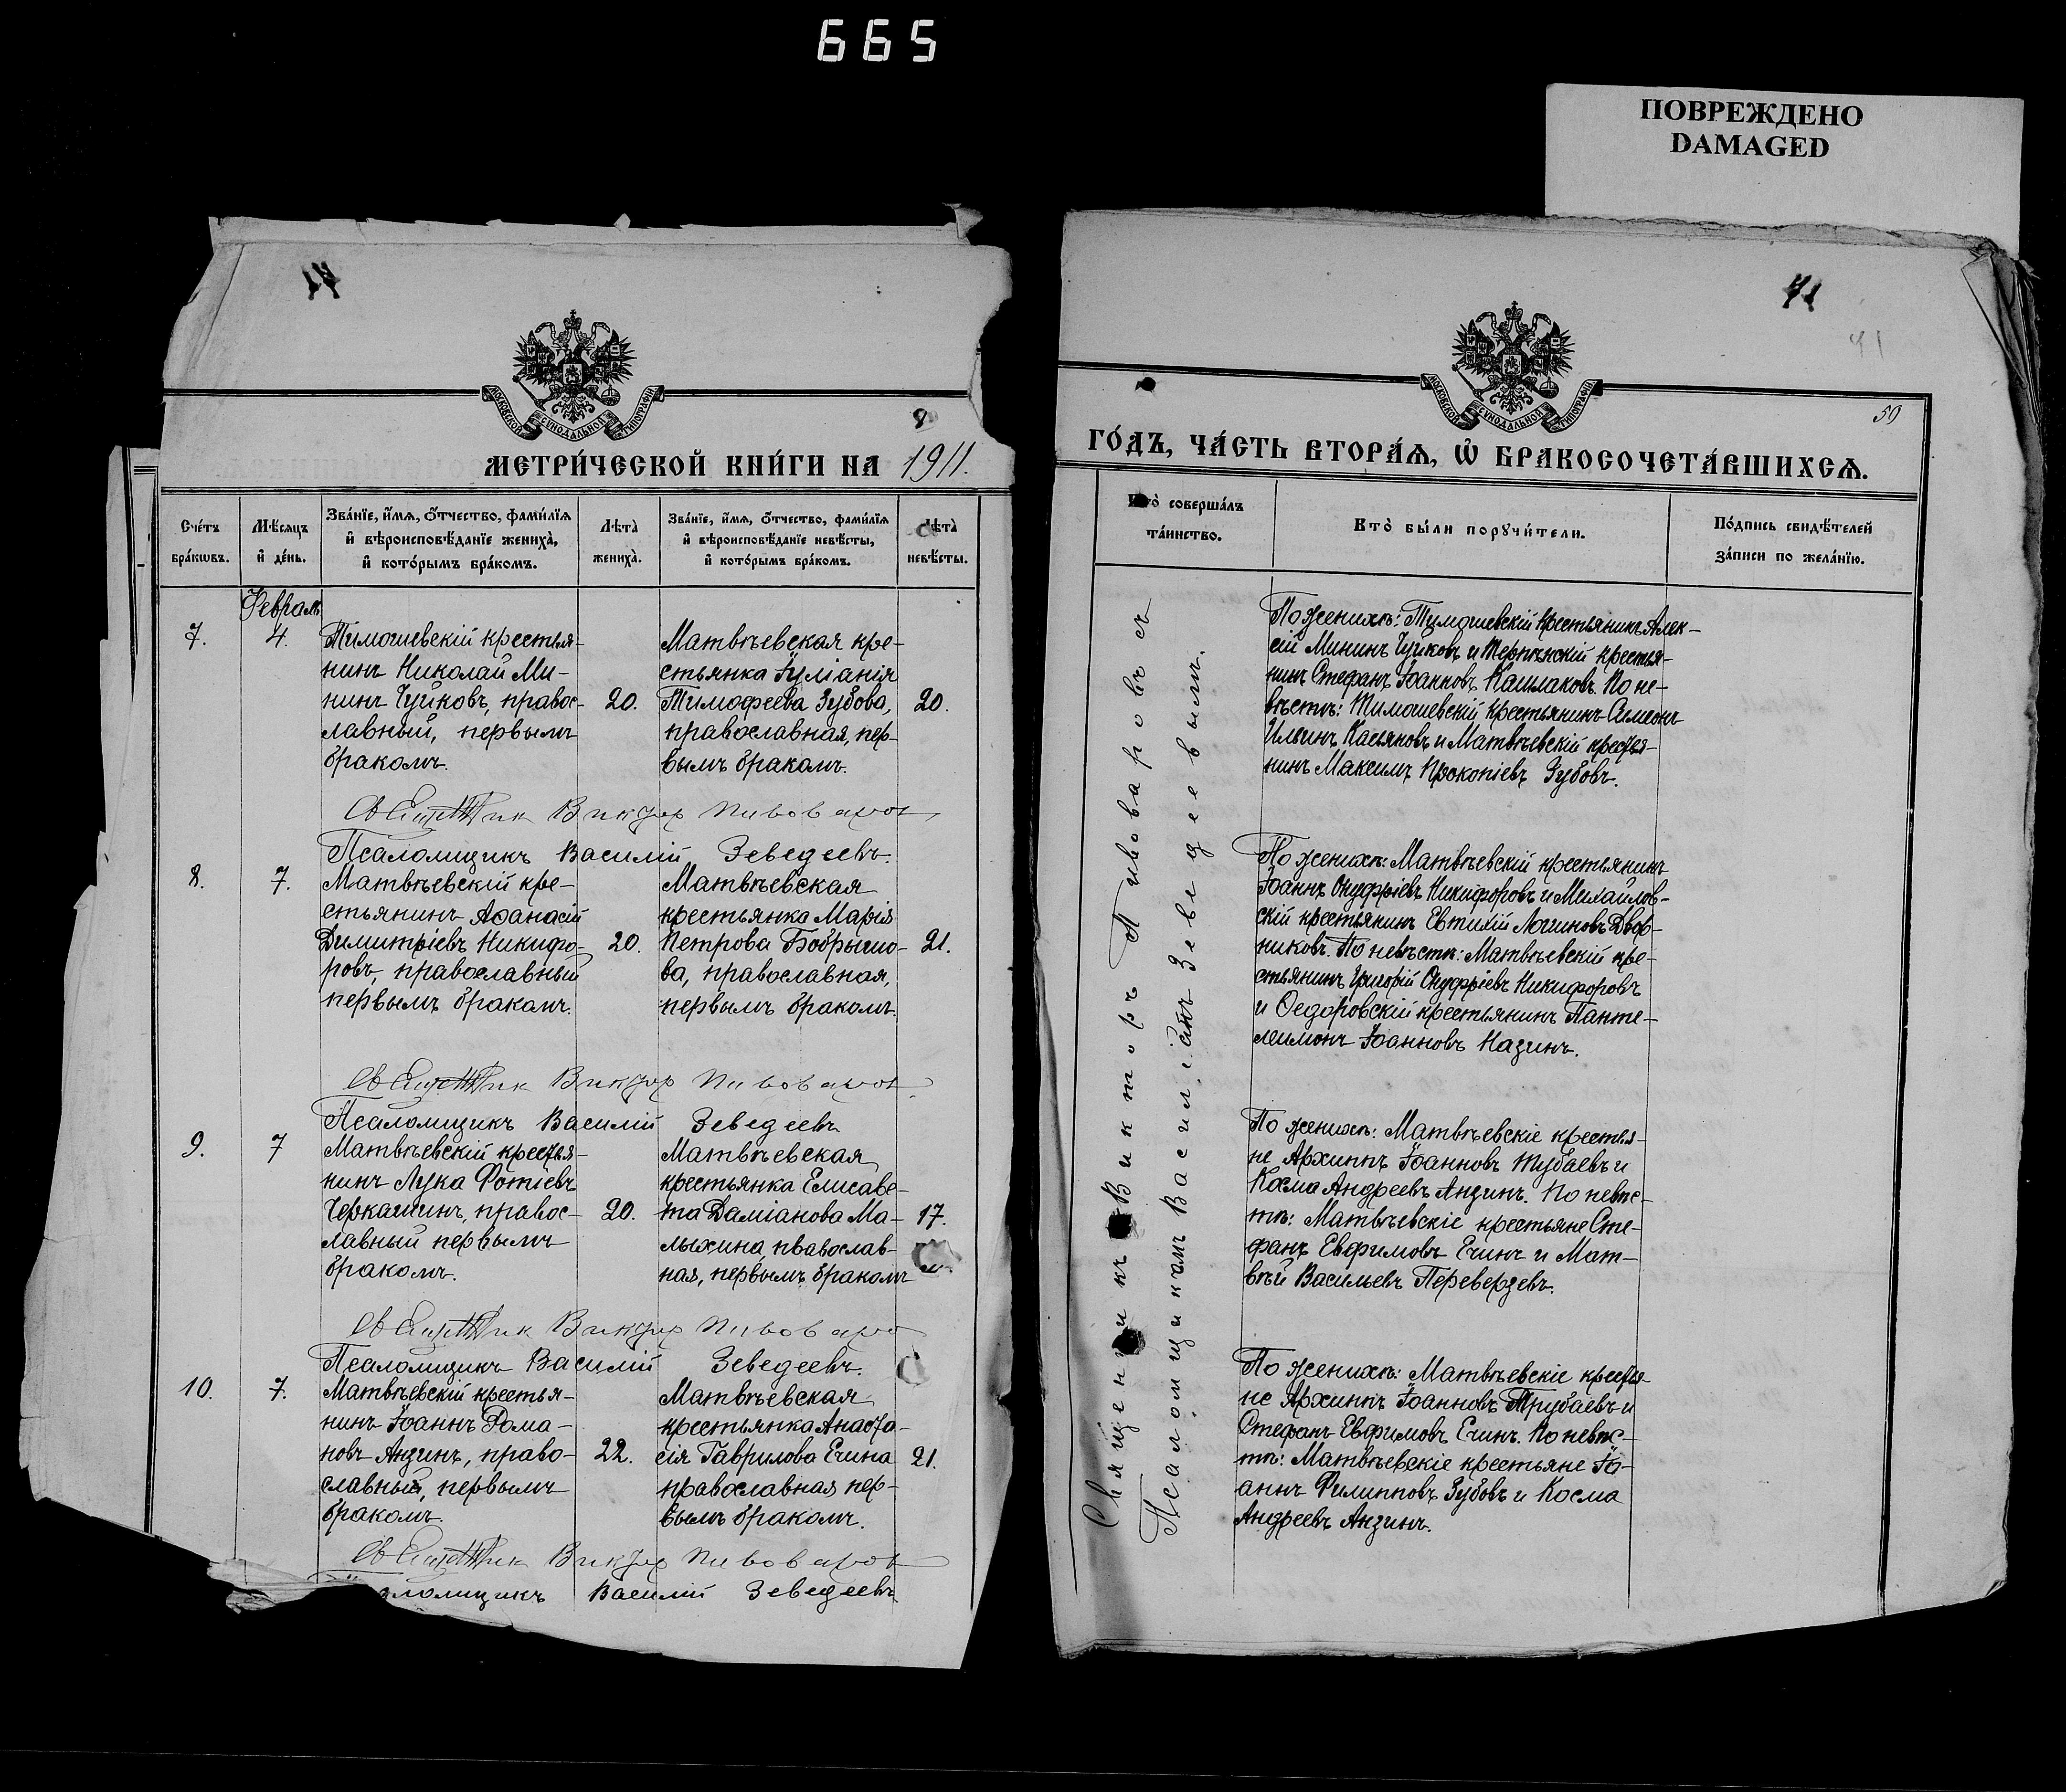 665
ПОВРЕЖДЕНО
DAMAGED
МОСКОВСКОЙ СѴНОДАЛЬНОЙ ТИПОГРАФІИ
МЕТРИ́ЧЕСКОЙ КНИ́ГИ НА 1911.
Сче́тъ бра́кωвъ.
Мѣ́сяцъ и҆ де́нь.
Зва́нїе, и҆́мѧ, ѻ҆́тчество, фами́лїѧ
и҆ вѣроисповѣ́данїе жениха̀,
и҆ кото́рымъ бра́комъ.
Лѣта̀ жениха̀.
Зва́нїе, и҆́мѧ, ѻ҆́тчество, фами́лїѧ
и҆ вѣроисповѣ́данїе невѣ́сты,
и҆ кото́рымъ бра́комъ.
Лѣта̀ невѣ́сты.
Февраль
7.
4.
Тимошевскій крестья-
нинъ Николай Ми-
нинъ Чуйковъ, правос-
лавный, первымъ
бракомъ.
20.
Матвѣевская кре-
стьянка Іуліанія
Тимофеева Зубова,
православная, пер-
вымъ бракомъ.
20.
Священникъ Викторъ Пивоваровъ
Псаломщикъ Василій Зеведеевъ.
8.
7.
Матвѣевскій кре-
стьянинъ Аѳанасій
Димитріевъ Никифо-
ровъ, православный
первымъ бракомъ.
20.
Матвѣевская
крестьянка Марія
Петрова Бобрышо-
ва, православная,
первымъ бракомъ.
21.
Священникъ Викторъ Пивоваровъ
Псаломщикъ Василій Зеведеевъ
9.
7
Матвѣевскій крестья-
нинъ Лука Фотіевъ
Черкашинъ, правос-
лавный первымъ
бракомъ.
20.
Матвѣевская
крестьянка Елисаве-
та Даміанова Ма-
лыхина, православ-
ная, первымъ бракомъ
17.
Священникъ Викторъ Пивоваро
Псаломщикъ Василій Зеведеевъ.
10.
7.
Матвѣевскій крестья-
нинъ Іоаннъ Рома-
новъ Анзинъ, право-
славный, первымъ
бракомъ.
22.
Матвѣевская
крестьянка Анаста-
сія Гаврилова Ечина
православная пер-
вымъ бракомъ.
21.
Священникъ Викторъ Пивоваровъ
аломщикъ Василій Зеведеевъ
41
50
МОСКОВСКОЙ СѴНОДАЛЬНОЙ ТИПОГРАФІИ
ГО́ДЪ, ЧА́СТЬ ВТОРА́Ѧ, Ѡ҆ БРАКОСОЧЕТА́ВШИХСѦ.
Кто̀ соверша́лъ
та́инство.
Кто̀ бы́ли порꙋчи́тели.
По́дпись свидѣ́телей
за́писи по жела́нїю.
Священникъ Викторъ Пивоваровъ съ
Псаломщикомъ Василіемъ Зеведеевымъ.
По женихѣ: Тимошевскій крестьянинъ Алек-
сій Мининъ Чуйковъ и Терпѣнскій крестья-
нинъ Стефанъ Іоанновъ Кашлаковъ. По не-
вѣстѣ: Тимошевскій крестьянинъ Симеонъ
Ильинъ Касьяновъ и Матвѣевскій крестья-
нинъ Максимъ Прокопіевъ Зубовъ.
По женихѣ: Матвѣевскій крестьянинъ
Іоаннъ Онуфріевъ Никифоровъ и Михайлов-
скій крестьянинъ Евтихій Логиновъ Двор-
никовъ. По невѣстѣ: Матвѣевскій кре-
стьянинъ Григорій Онуфріевъ Никифоровъ
и Ѳедоровскій крестьянинъ Панте-
леимонъ Іоанновъ Назинъ.
По женихѣ: Матвѣевскіе крестья-
не Архиппъ Іоанновъ Трубаевъ и
Косма Андреевъ Анзинъ. По невѣс-
тѣ: Матвѣевскіе крестьяне Сте-
фанъ Евфимовъ Ечинъ и Мат-
вѣй Васильевъ Переверзевъ.
По женихѣ: Матвѣевскіе крестья-
не Архиппъ Іоанновъ Трубаевъ и
Стефанъ Евфимовъ Ечинъ. По невѣс-
тѣ: Матвѣевскіе крестьяне Іо-
аннъ Филипповъ Зубовъ и Косма
Андреевъ Анзинъ.